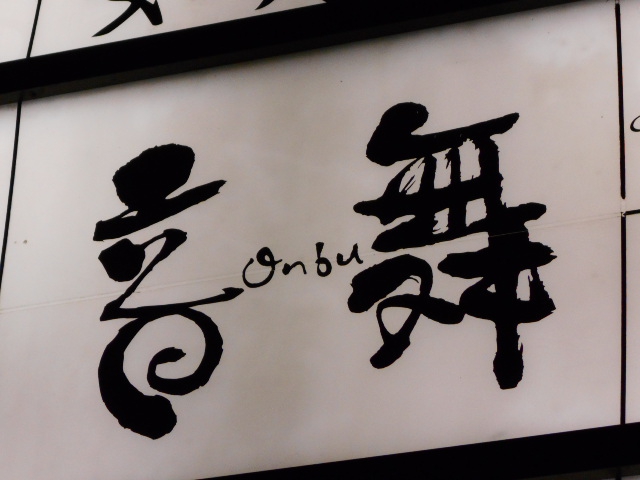 音 Onbu 舞